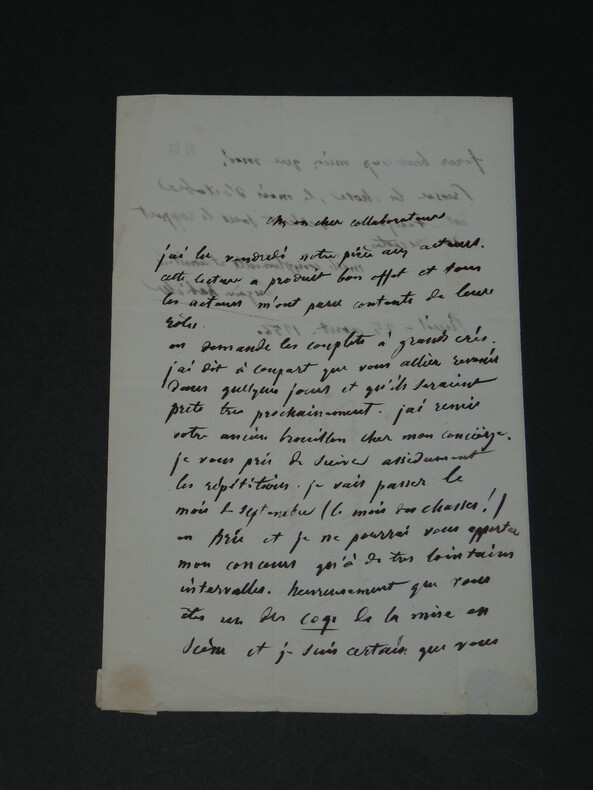 Mon cher collaborateur
j'ai lu vendredi notre pièce aux acteurs.
cette lecture a produit bon effet et tous
les acteurs m'ont paru contents de leurs
rôles.
on demande les couplets à grands cris.
j'ai dit à coupart que vous alliez revenir
dans quelques jours et qu'ils seraient
prets tres prochainement. j'ai remis
votre ancien brouillon chez mon concierge.
je vous prie de suivre assidument
les répétitions. je vais passer le
mois de septembre (le mois des chasses!)
en Brie et je ne pourrai vous apporter
mon concours qu'à de tres lointains
intervalles. heureusement que vous
êtes un des coqs de la mise en
scène et je suis certain que vous